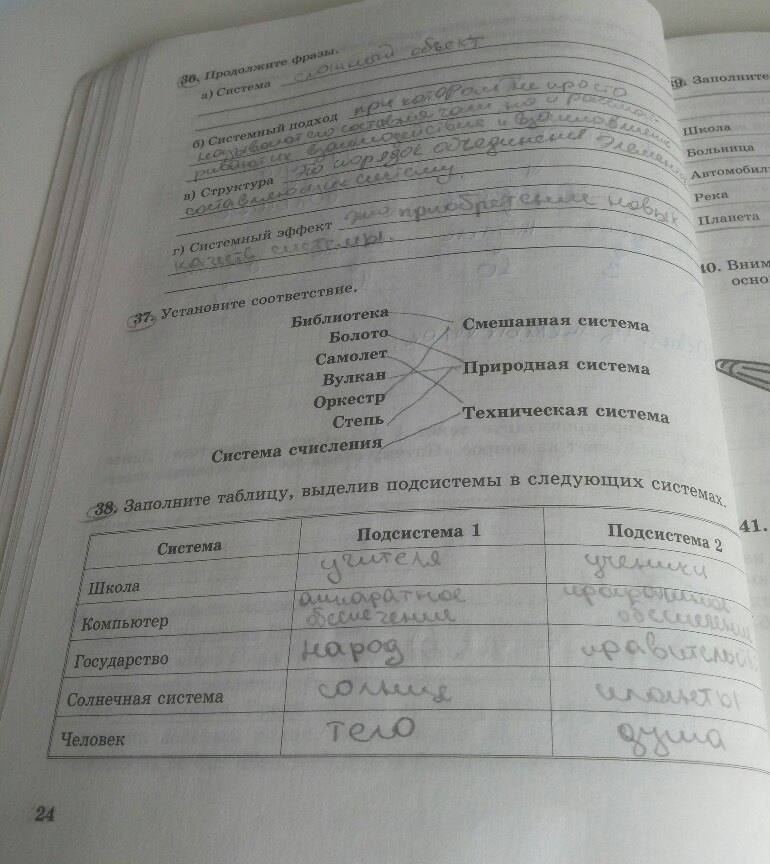 36. Продолжите фразы.
а) Система сложный объект
б) Системный подход при котором не просто
называют его составные части но и рассмат-
ривают их взаимодействие и взаимовлияние
в) Структура это порядок объединения элементов
составляющих систему.
г) Системный эффект это приобретение новых
качеств системы.
37. Установите соответствие.
Библиотека
Болото
Самолет
Вулкан
Оркестр
Степь
Система счисления
Смешанная система
Природная система
Техническая система
38. Заполните таблицу, выделив подсистемы в следующих системах.
Система Подсистема 1 Подсистема 2
Школа учителя ученики
Компьютер аппаратное обеспечение программное обеспечение
Государство народ правительсв
Солнечная система солнце планеты
Человек тело душа
24
39. Заполните
Школа
Больница
Автомобил
Река
Планета
40. Вним
осно
41.